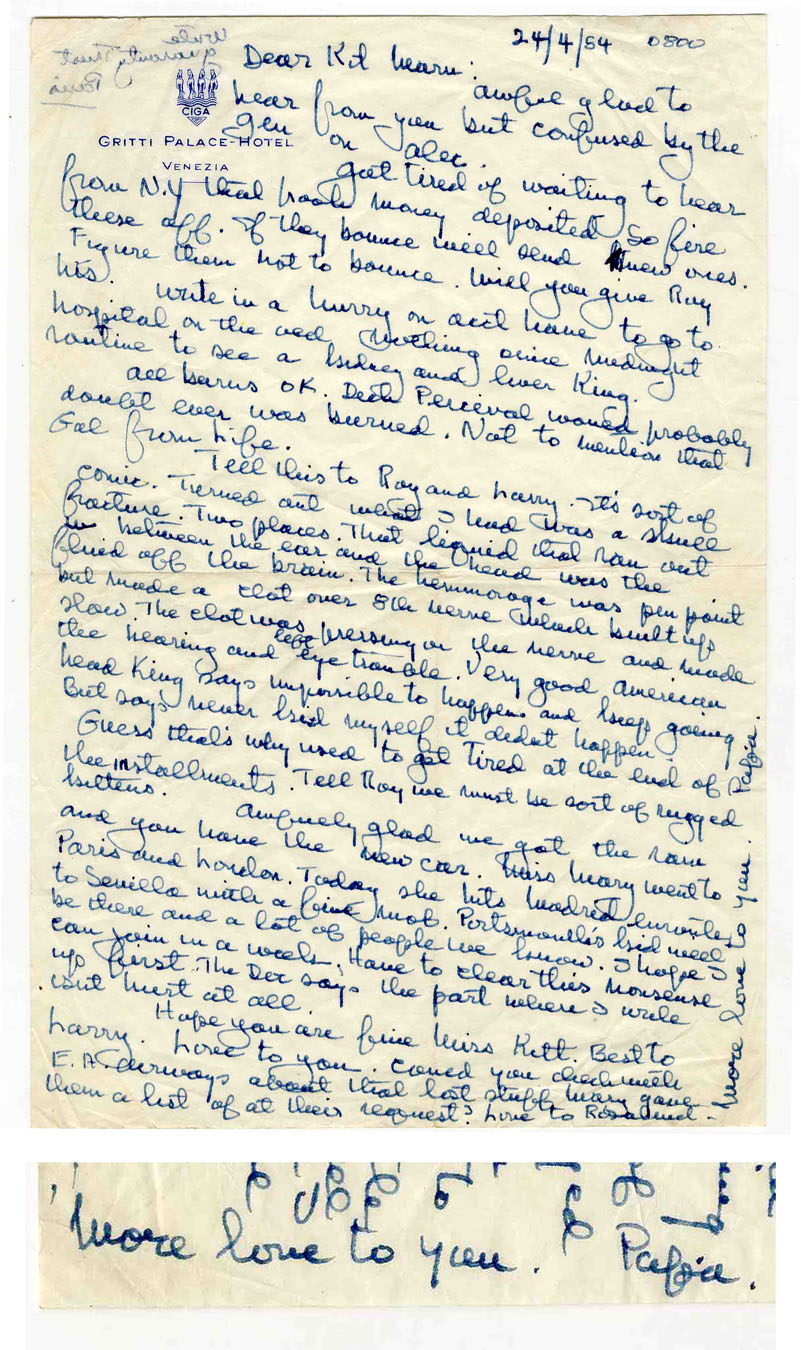 24/4/54 0800
wrote
guaranty Trust
Paris
CIGA
GRITTI PALACE-HOTEL
VENEZIA
Dear Kit
awful glad to
hear from you but confused by the
gen on alec.
got tired of waiting to hear
from N.Y that book money deposited so fire
these off. If they bounce will send new ones.
Figure them not to bounce. Will you give Roy
his. Write in a hurry on acct have to go to
hospital on the nothing since midnight
routine to see a kidney and liver King.
all burns OK. Dick Percival would probably
doubt ever was burned. Not to mention that
Gal from Life.
Tell this to Roy and Larry. It's sort of
comic. Turned out what I had was a skull
fracture. Two places. That liquid that ran out
in between the ear and the head was the
fluid off the brain. The hemmorage was pen point
but made a clot over 8th nerve which built up
slow. The clot was pressing on the nerve and made
the hearing and left eye trouble. Very good American
head King says impossible to happen and keep going
But says never kid myself it didnt happen.
Guess that's why used to get tired at the end of
the installments. Tell Roy we must be sort of rugged
kittens.
Awfuely glad we got the ram
and you have the new car. Miss Mary went to
Paris and London. Today she hits Madrid enroute
to Sevilla with a fine mob. Portsmouth's kid will
be there and a lot of people we know. I hope I
can join in a week. Have to clear this nonsense
up first. The Doc says the part where I write
isnt hurt at all.
Hope you are fine Miss Kitt. Best to
Larry. Love to you. Could you check with
E.A. Airways about that lost stuff Mary gave
them a list of at their request? Love to Rosalind -
More love to you. Papa.
More love to you. Papa.